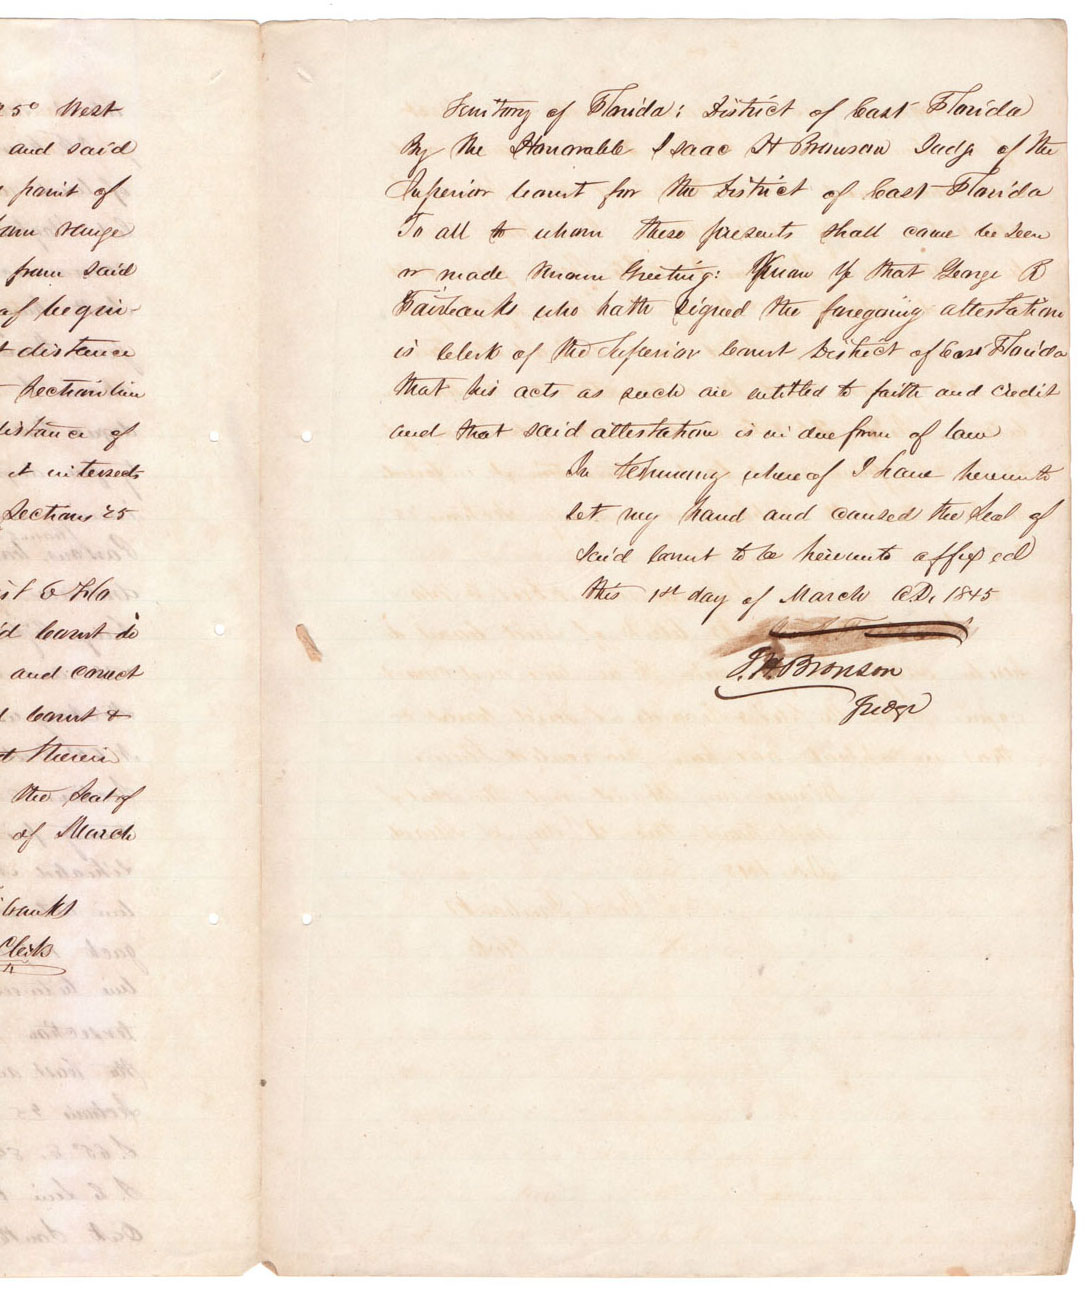 25° West
and said
point of
range
from said
of begin-
distance
Section line
distance of
it intersects
Sections 25
Court do
and correct
Court &
therein
the Seal of
of March
banks
Clerk
Territory of Florida: District of East Florida
By the Honorable Isaac H Bronson Judge of the
Superior Court for the District of East Florida
To all to whom these presents shall come be seen
or made known Greeting: Know Ye that George R
Fairbanks who hath signed the foregoing attestation
is Clerk of the Superior Court District of East Florida
that his acts as such are entitled to faith and credit
and that said attestation is in due form of law
In testimony whereof I have hereunto
set my hand and caused the Seal of
said Court to be hereunto affixed
this 1st day of March A.D. 1845
I. H. Bronson
Judge